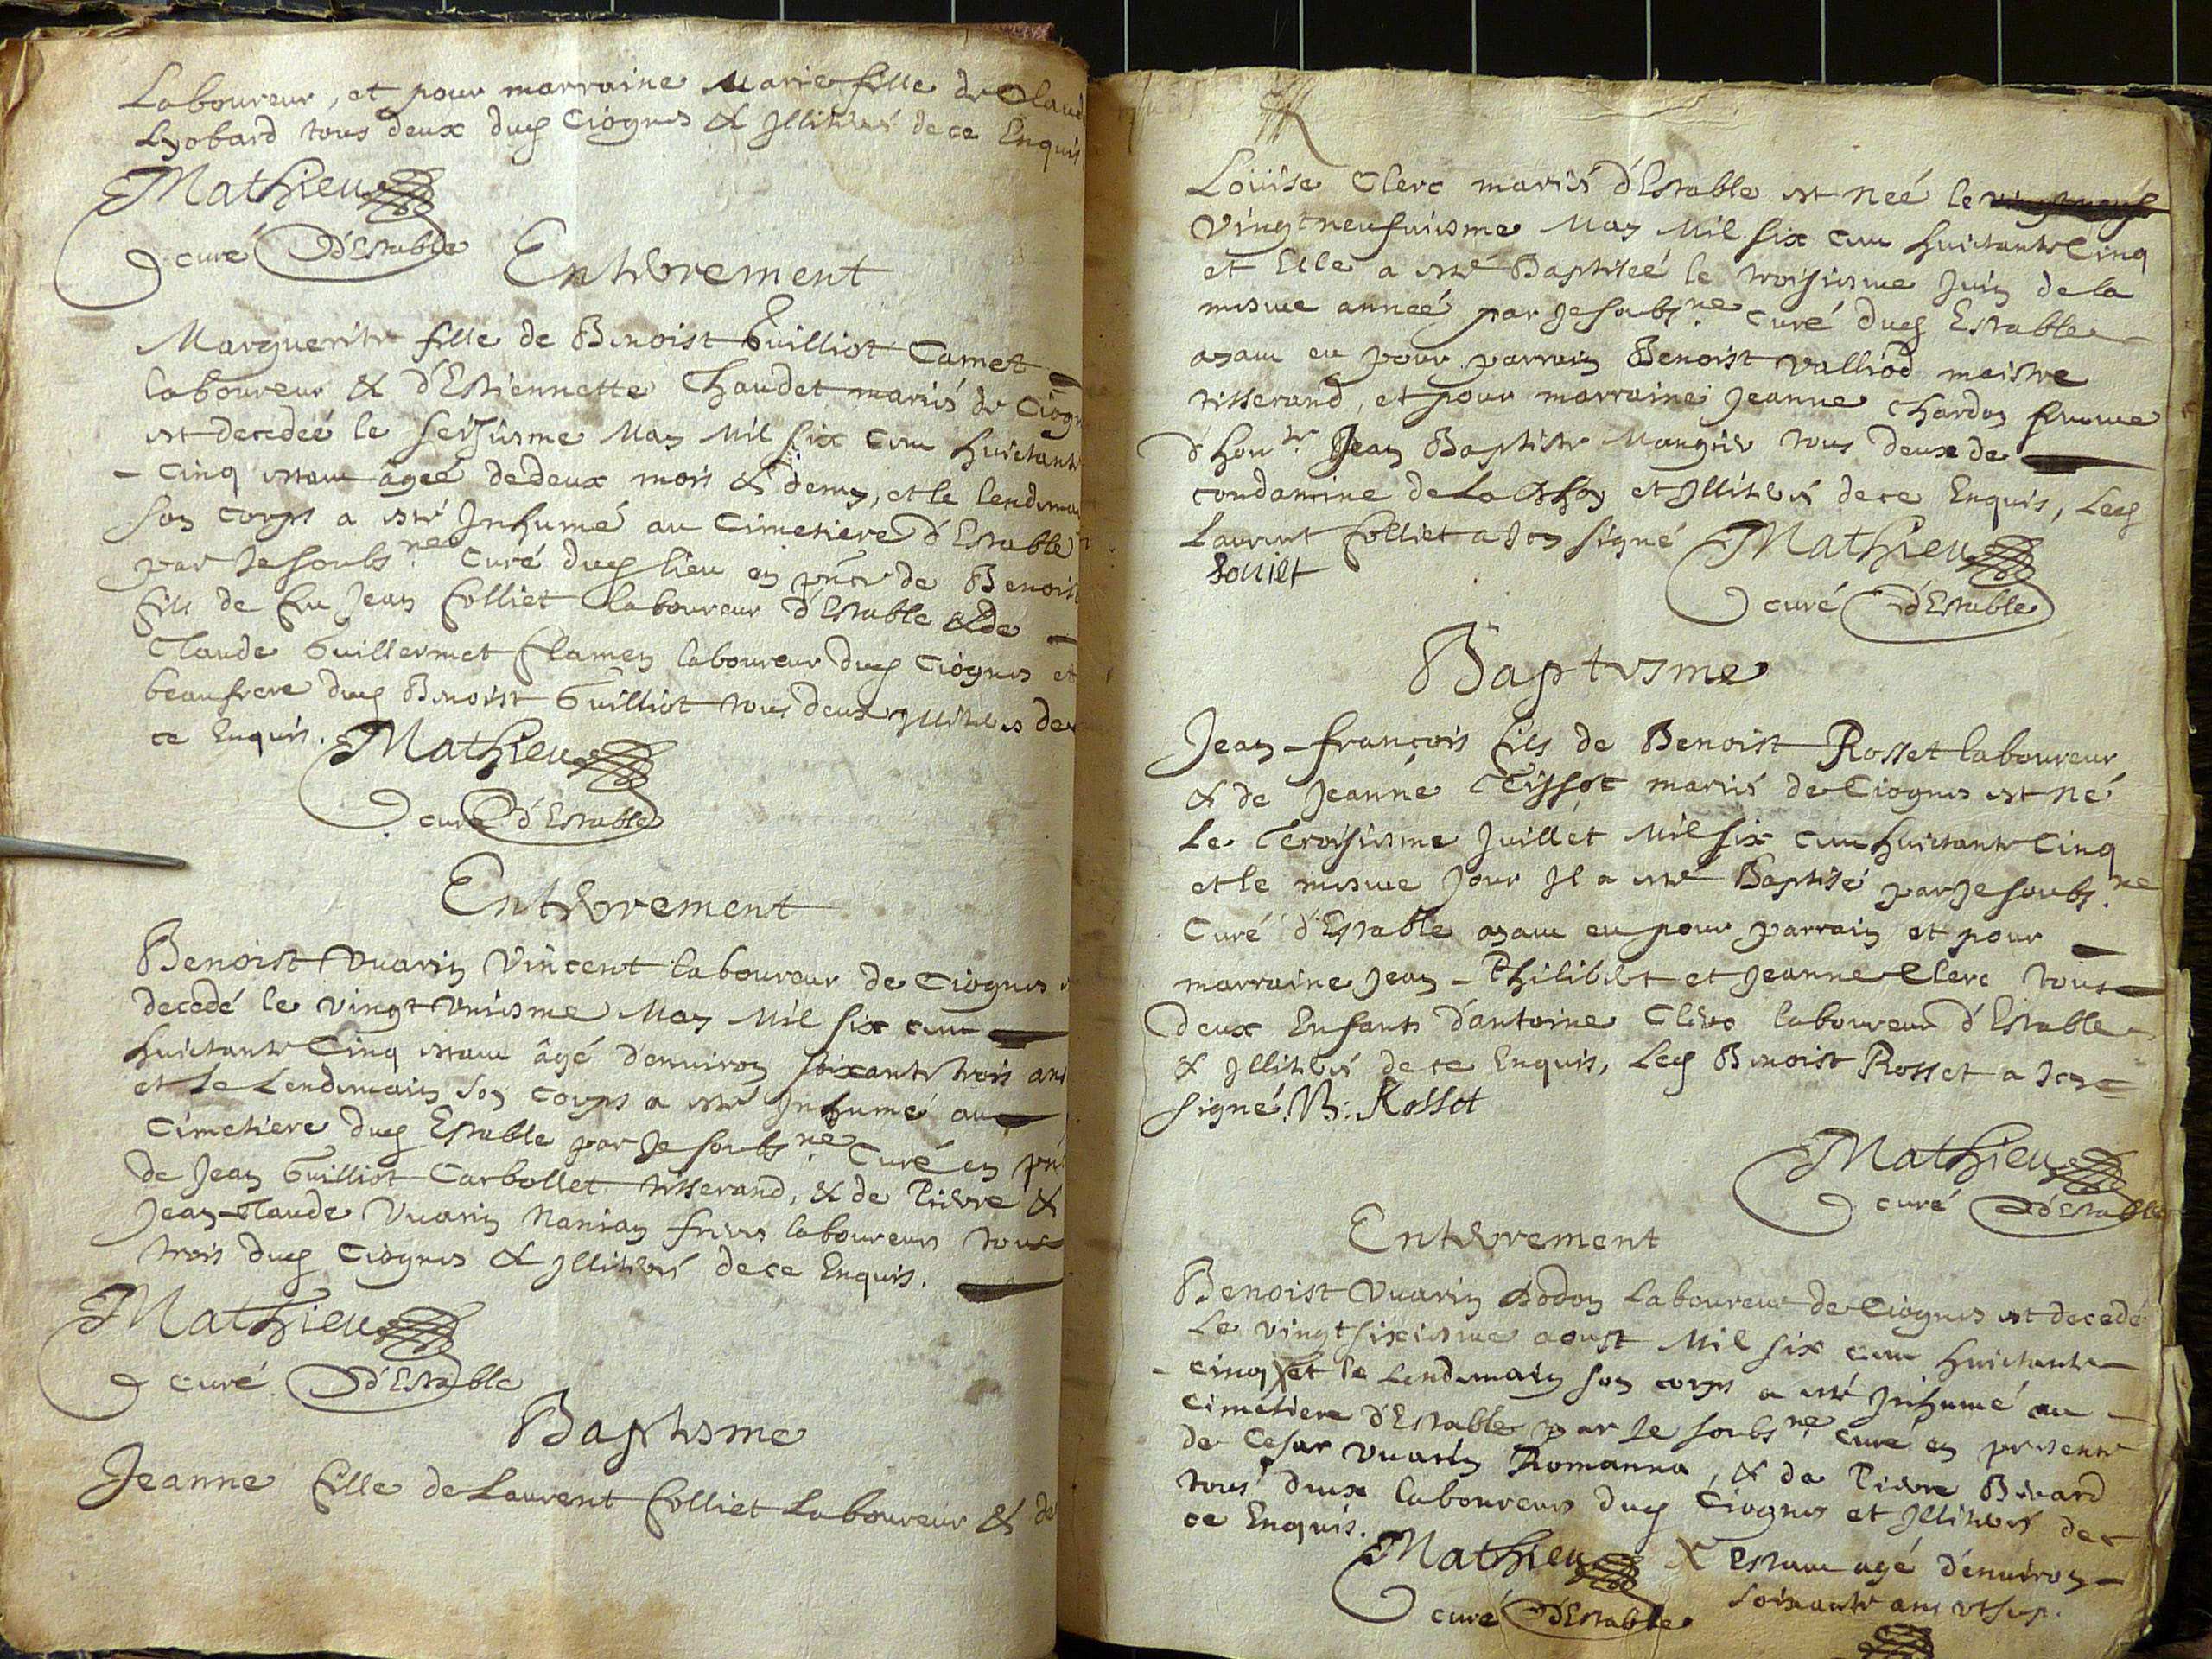 Laboureur, et pour marraine Marie fille de Claud
Lyobard tous deux dud Ciognes & Illiterés de ce Enquis
Mathieu
curé d'Estable
Enterrement
Marguerite fille de Benoist Guilliot Camet
laboureur & d'Estiennette Chaudet mariés de Ciogn
est decedeé le seiziesme May Mil six cent huictante
- Cinq estant âgeé de deux mois & demy, et le lendema
son corps a esté Inhumé au Cimetiere d'Estable
par Je soubs.né Curé dud lieu en pñce de Benoist
fils de feu Jean Colliet laboureur d'Estable & de
Claude Guillermet Flamen laboureur dud Ciognes et
beaufrere dud Benoist Guilliot tous deux Illiterés de
ce Enquis. Mathieu
curé d'Estable
Enterrement
Benoist Vuarin Vincent laboureur de Ciognes
decedé le vingt vniesme May Mil six cent
huictante Cinq estant âgé d'enuiron soixante trois ans
et le Lendemain son corps a esté Inhumé au
Cimetiere dud Estable par Je soubs.né Curé en pñ
de Jean Guilliot Carbollet tisserand, & de Pierre &
Jean-Claude Vuarin Nanian freres laboureurs tous
trois dud Ciognes & Illiterés de ce Enquis.
Mathieu
curé d'Estable
Baptesme
Jeanne fille de Laurent Colliet Laboureur & de
Loüise Clerc mariés d'Estable est neé le vingtneuf
Vingtneufuiesme May Mil six cent huictante Cinq
et Elle a esté Baptiseé le troisiesme Juin de la
mesme anneé par Je soubs.né Curé dud Estable
ayant eu pour parrain Benoist Valliod meistre
tisserand, et pour marraine Jeanne Chardon femme
d'hon.te Jean Baptiste Mangier tous deux de
condamine de La Dhoy et Illiterés de ce Enquis, Led
Laurent Colliet a Icy signé Mathieu
Colliet
curé d'Estable
Baptesme
Jean-François fils de Benoist Rosset laboureur
& de Jeanne Tissot mariés de Ciognes est né
Le Troisiesme Juillet Mil six cent huictante Cinq
et le mesme Jour Il a esté Baptisé par Je soubs.né
Curé d'Estable ayant eu pour parrain et pour
marraine Jean-Philibert et Jeanne Clerc tous
deux Enfants d'antoine Clerc laboureur d'Estable
& Illiterés de ce Enquis, Led Benoist Rosset a Icy
signé. B: Rosset
Mathieu
curé d'Estable
Enterrement
Benoist Vuarin Dodon Laboureur de Ciognes est decedé
Le vingtsixiesme aoust Mil six cent huictante
- cinq X et le Lendemain son corps a esté Inhumé au
Cimetiere d'Estable par Je soubs.né curé en presente
de Cesar Vuarin Romanna, & de Pierre Berard
tous deux laboureurs dud Ciognes et Illiterés de
ce Enquis.
Mathieu
curé d'Estable
X Estant agé d'enuiron
soixante ans vt sup.